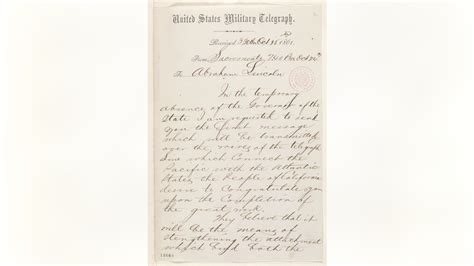 United States Military Telegraph.
Received Oct 25 1861.
From Sacramento, Oct 24
To Abraham Lincoln
In the temporary
absence of the Governor of the
State I am requested to send
you the first message
which will be transmitted
over the wires of the telegraph
line which Connect the
Pacific with the Atlantic
States, the People of California
desire to Congratulate you
upon the Completion of
the great work.
They believe that it
will be the means of
strengthening the attachment
which bind both the